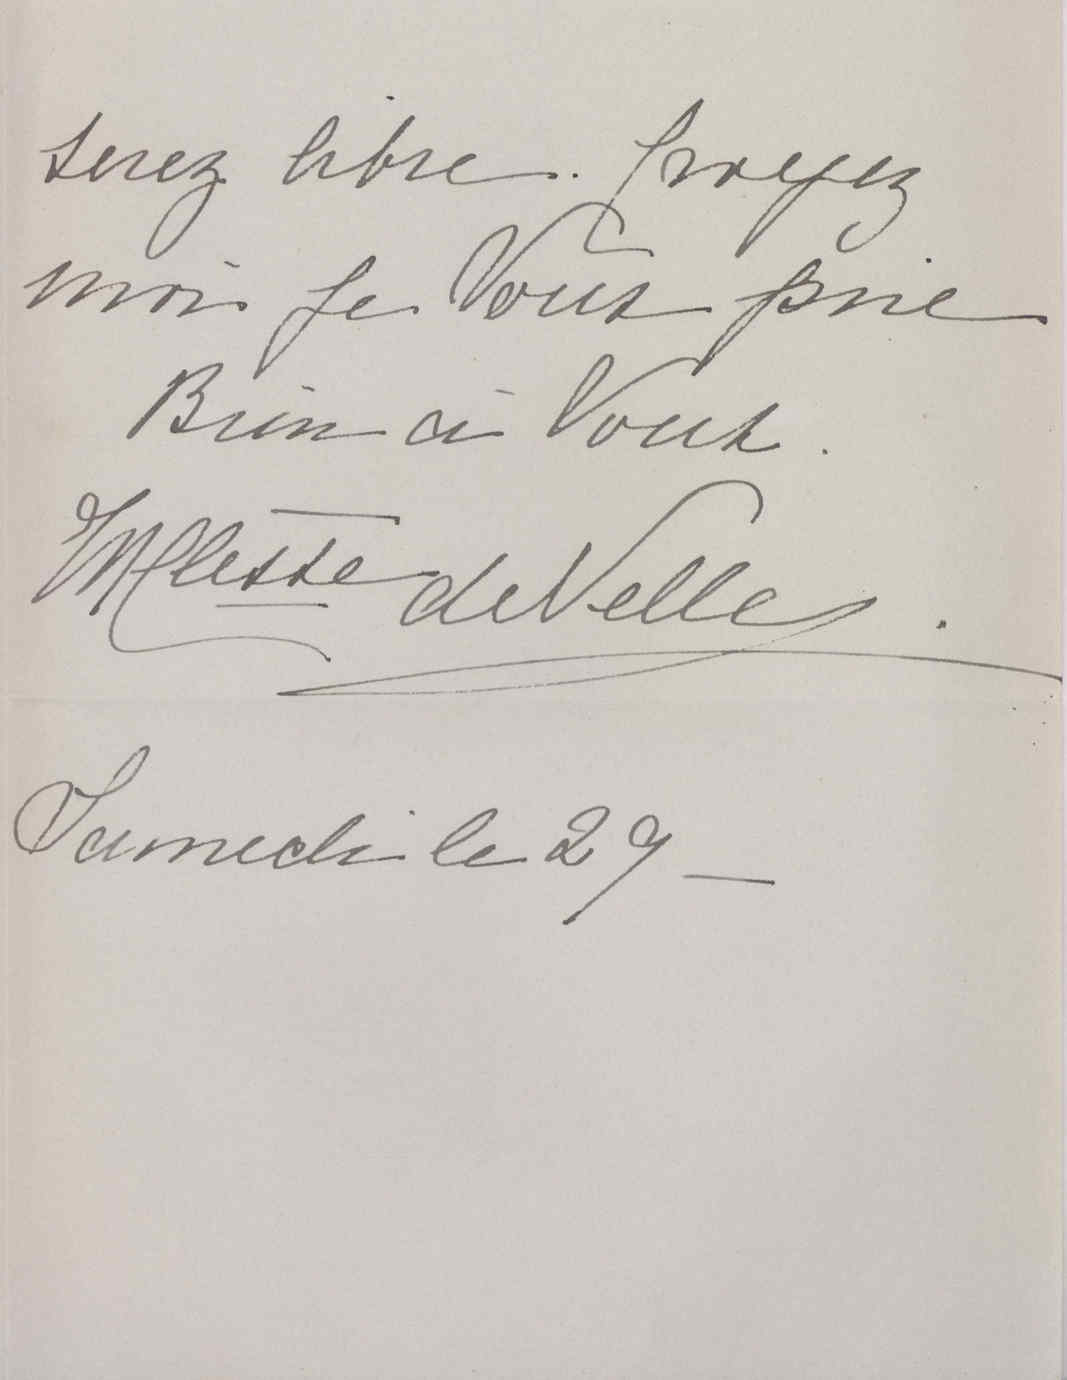 serez libre. Croyez
moi je Vous prie
Bien à Vous.
de Velle
Samedi le 29 _